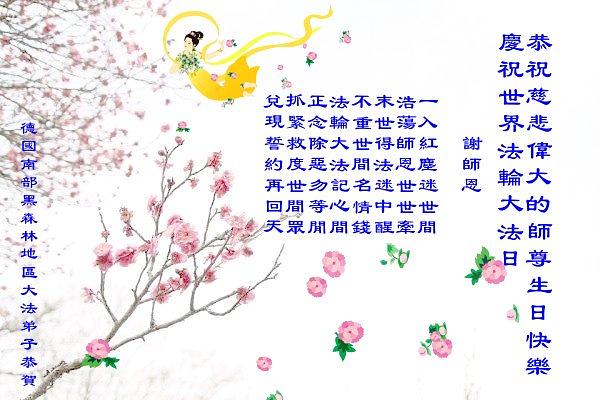 恭祝慈悲偉大的師尊生日快樂
慶祝世界法輪大法日
謝師恩
一入紅塵迷世間
浩蕩師恩世世牽
末世得法迷中醒
不重世間名情錢
法輪大法記心間
正念除惡勿等閒
抓緊救度世間眾
兌現誓約再回天
德國南部黑森林地區大法弟子恭賀